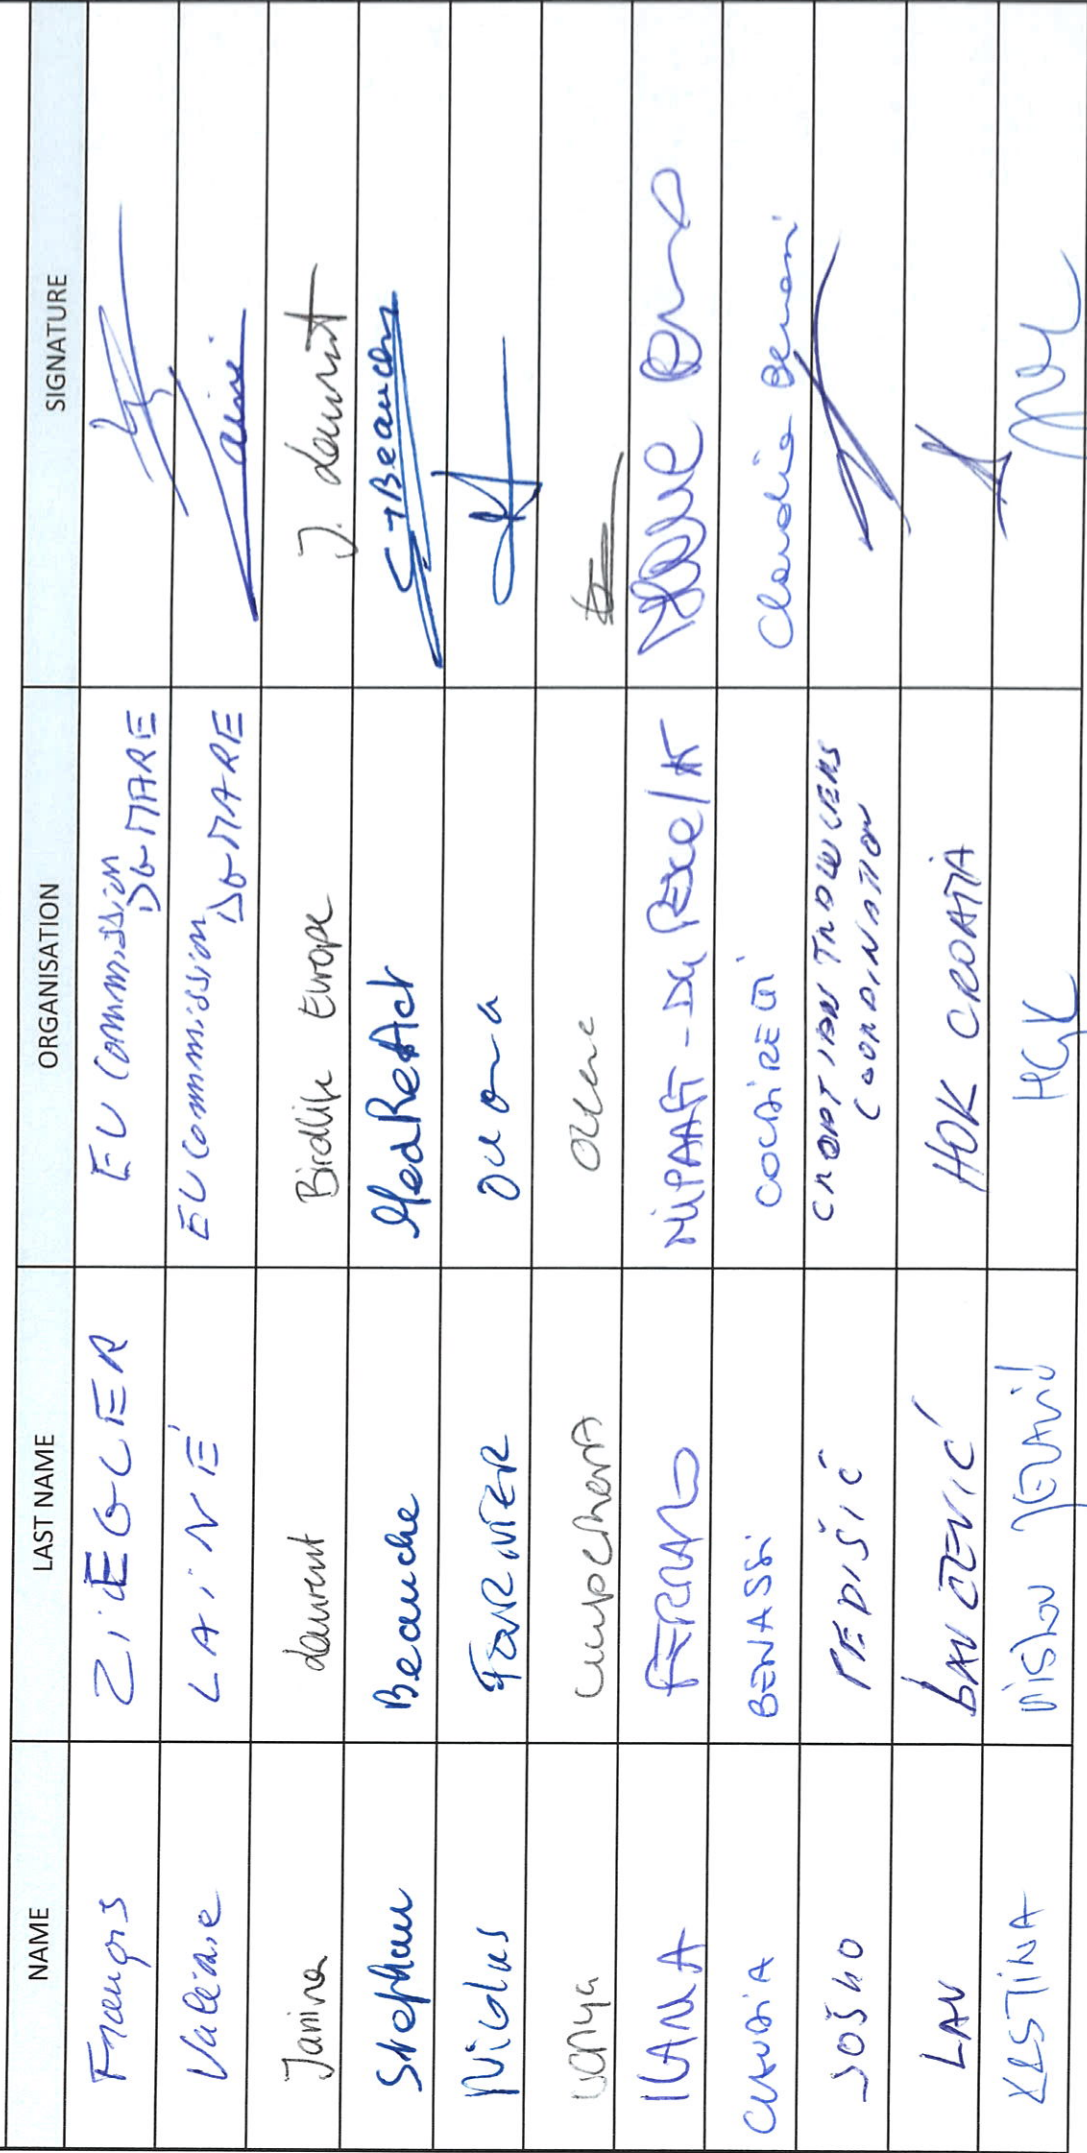 NAME LAST NAME ORGANISATION SIGNATURE
François ZIEGLER EU Commission DG MARE
Valérie LAINÉ EU Commission DG MARE Lainé
Janina Laurent Birdlife Europe J. Laurent
Stephan Beauche MedReAct
Nicolas FOURNIER Oceana
Oceana
ILARIA FERRARO MIPAAFT - DG PEMAC / IT
CLAUDIA BENASSI COGIRETI Claudia Benassi
JOŠKO PEDIŠIĆ CROATIAN COORDINATION
LAV BAVČEVIĆ HOK CROATIA
KRISTINA HGK